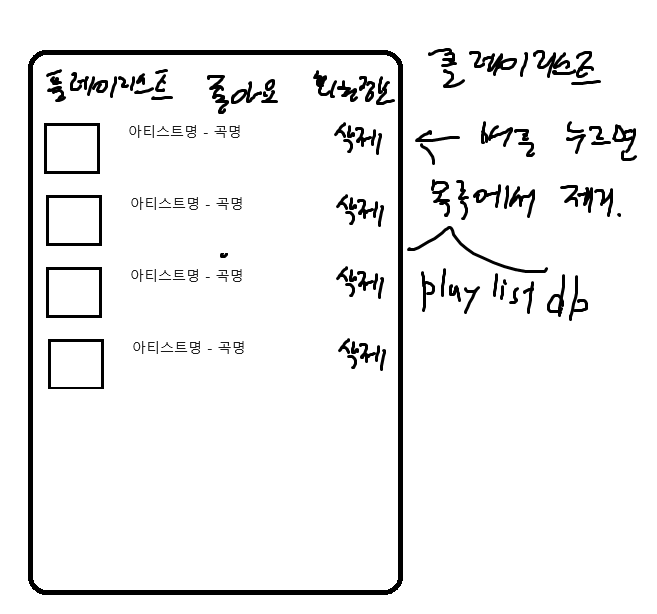 플레이리스트 좋아요 회원정보
아티스트명 - 곡명 삭제
아티스트명 - 곡명 삭제
아티스트명 - 곡명 삭제
아티스트명 - 곡명 삭제
플레이리스트
버튼 누르면
목록에서 제거.
playlist db